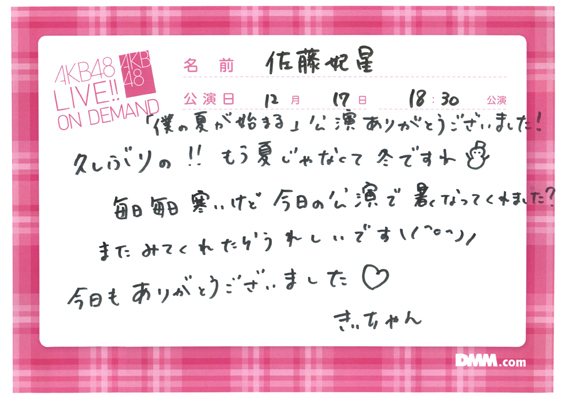 AKB48
LIVE!!
ON DEMAND
AKB
48
名前 佐藤妃星
公演日 12月 17日 18:30 公演
「僕の夏が始まる」公演ありがとうございました!
久しぶりの!! もう夏じゃなくて冬ですね
毎日毎日寒いけど今日の公演で暑くなってくれました?
またみてくれたらうれしいです\(^o^)/
今日もありがとうございました♡
きぃちゃん
DMM.com